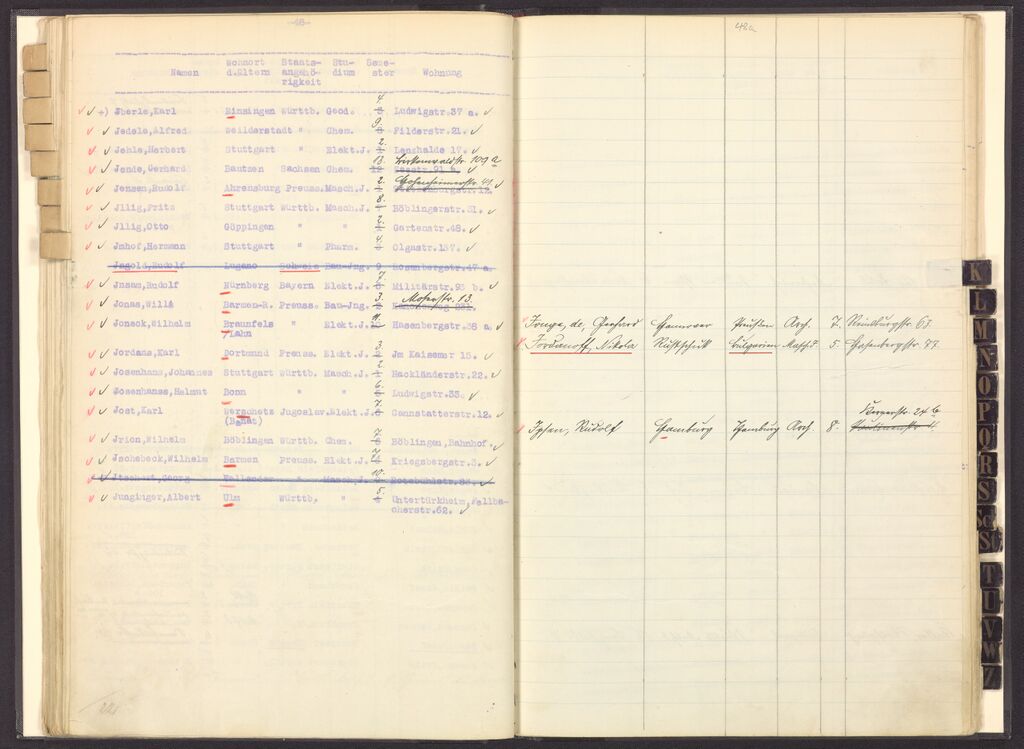 -48-
Namen Wohnort d.Eltern Staats-angehö-rigkeit Stu-dium Seme-ster Wohnung
+) Jberle,Karl Binsingen Württb. Geod. 4. Ludwigstr.37 a.
Jedele,Alfred Weilderstadt " Chem. 9. Filderstr.21.
Jehle,Herbert Stuttgart " Elekt.J. 2. Lenzhalde 17.
Jende,Gerhard Bautzen Sachsen Chem. 13. Birkenwaldstr. 109 a
Jensen,Rudolf Ahrensburg Preuss. Masch.J. 2. Hohenheimerstr. 41
Jllig,Fritz Stuttgart Württb. Masch.J. 8. Böblingerstr.31.
Jllig,Otto Göppingen " " 2. Gartenstr.48.
Jmhof,Hermann Stuttgart " Pharm. 4. Olgastr.137.
Jagold,Rudolf Lugano Schweiz Bau-Jng. 9 Rosenbergstr.47 a.
Jnsam,Rudolf Nürnberg Bayern Elekt.J. 7. Militärstr.93 b.
Jonas,Willi Barmen-R. Preuss. Bau-Jng. 3. Moserstr. 13.
Joneck,Wilhelm Braunfels " Elekt.J. Hasenbergstr.38 a.
/Lahn
Jordans,Karl Dortmund Preuss. Elekt.J. 3. Jm Kaisemer 15.
Josenhans,Johannes Stuttgart Württb. Masch.J. 2. Hackländerstr.22.
Josenhanss,Helmut Bonn " " 6. Ludwigstr.33.
Jost,Karl Werschetz Jugoslav. Elekt.J. 7. Cannstatterstr.12.
(Banat)
Jrion,Wilhelm Böblingen Württb. Chem. 7. Böblingen,Bahnhof
Jschebeck,Wilhelm Barmen Preuss. Elekt.J. 7. Kriegsbergstr.3.
Jtschert,Georg Vallendar " Masch.J. 10. Rotebühlstr.
Junginger,Albert Ulm Württb. " 5. Untertürkheim,Fellba-
cherstr.62.
221
48a
Jonge, de, Gerhard Hannover Preußen Arch. 7.
Jordanoff, Nikola Rustschuk Bulgarien Masch.J. 5. Hasenbergstr. 77
Ipsen, Rudolf Hamburg Hamburg Arch. 8. Kernerstr. 24 b
K
L
M
N
O
P
Q
R
S
Sch
St
T
U
V
W
Z